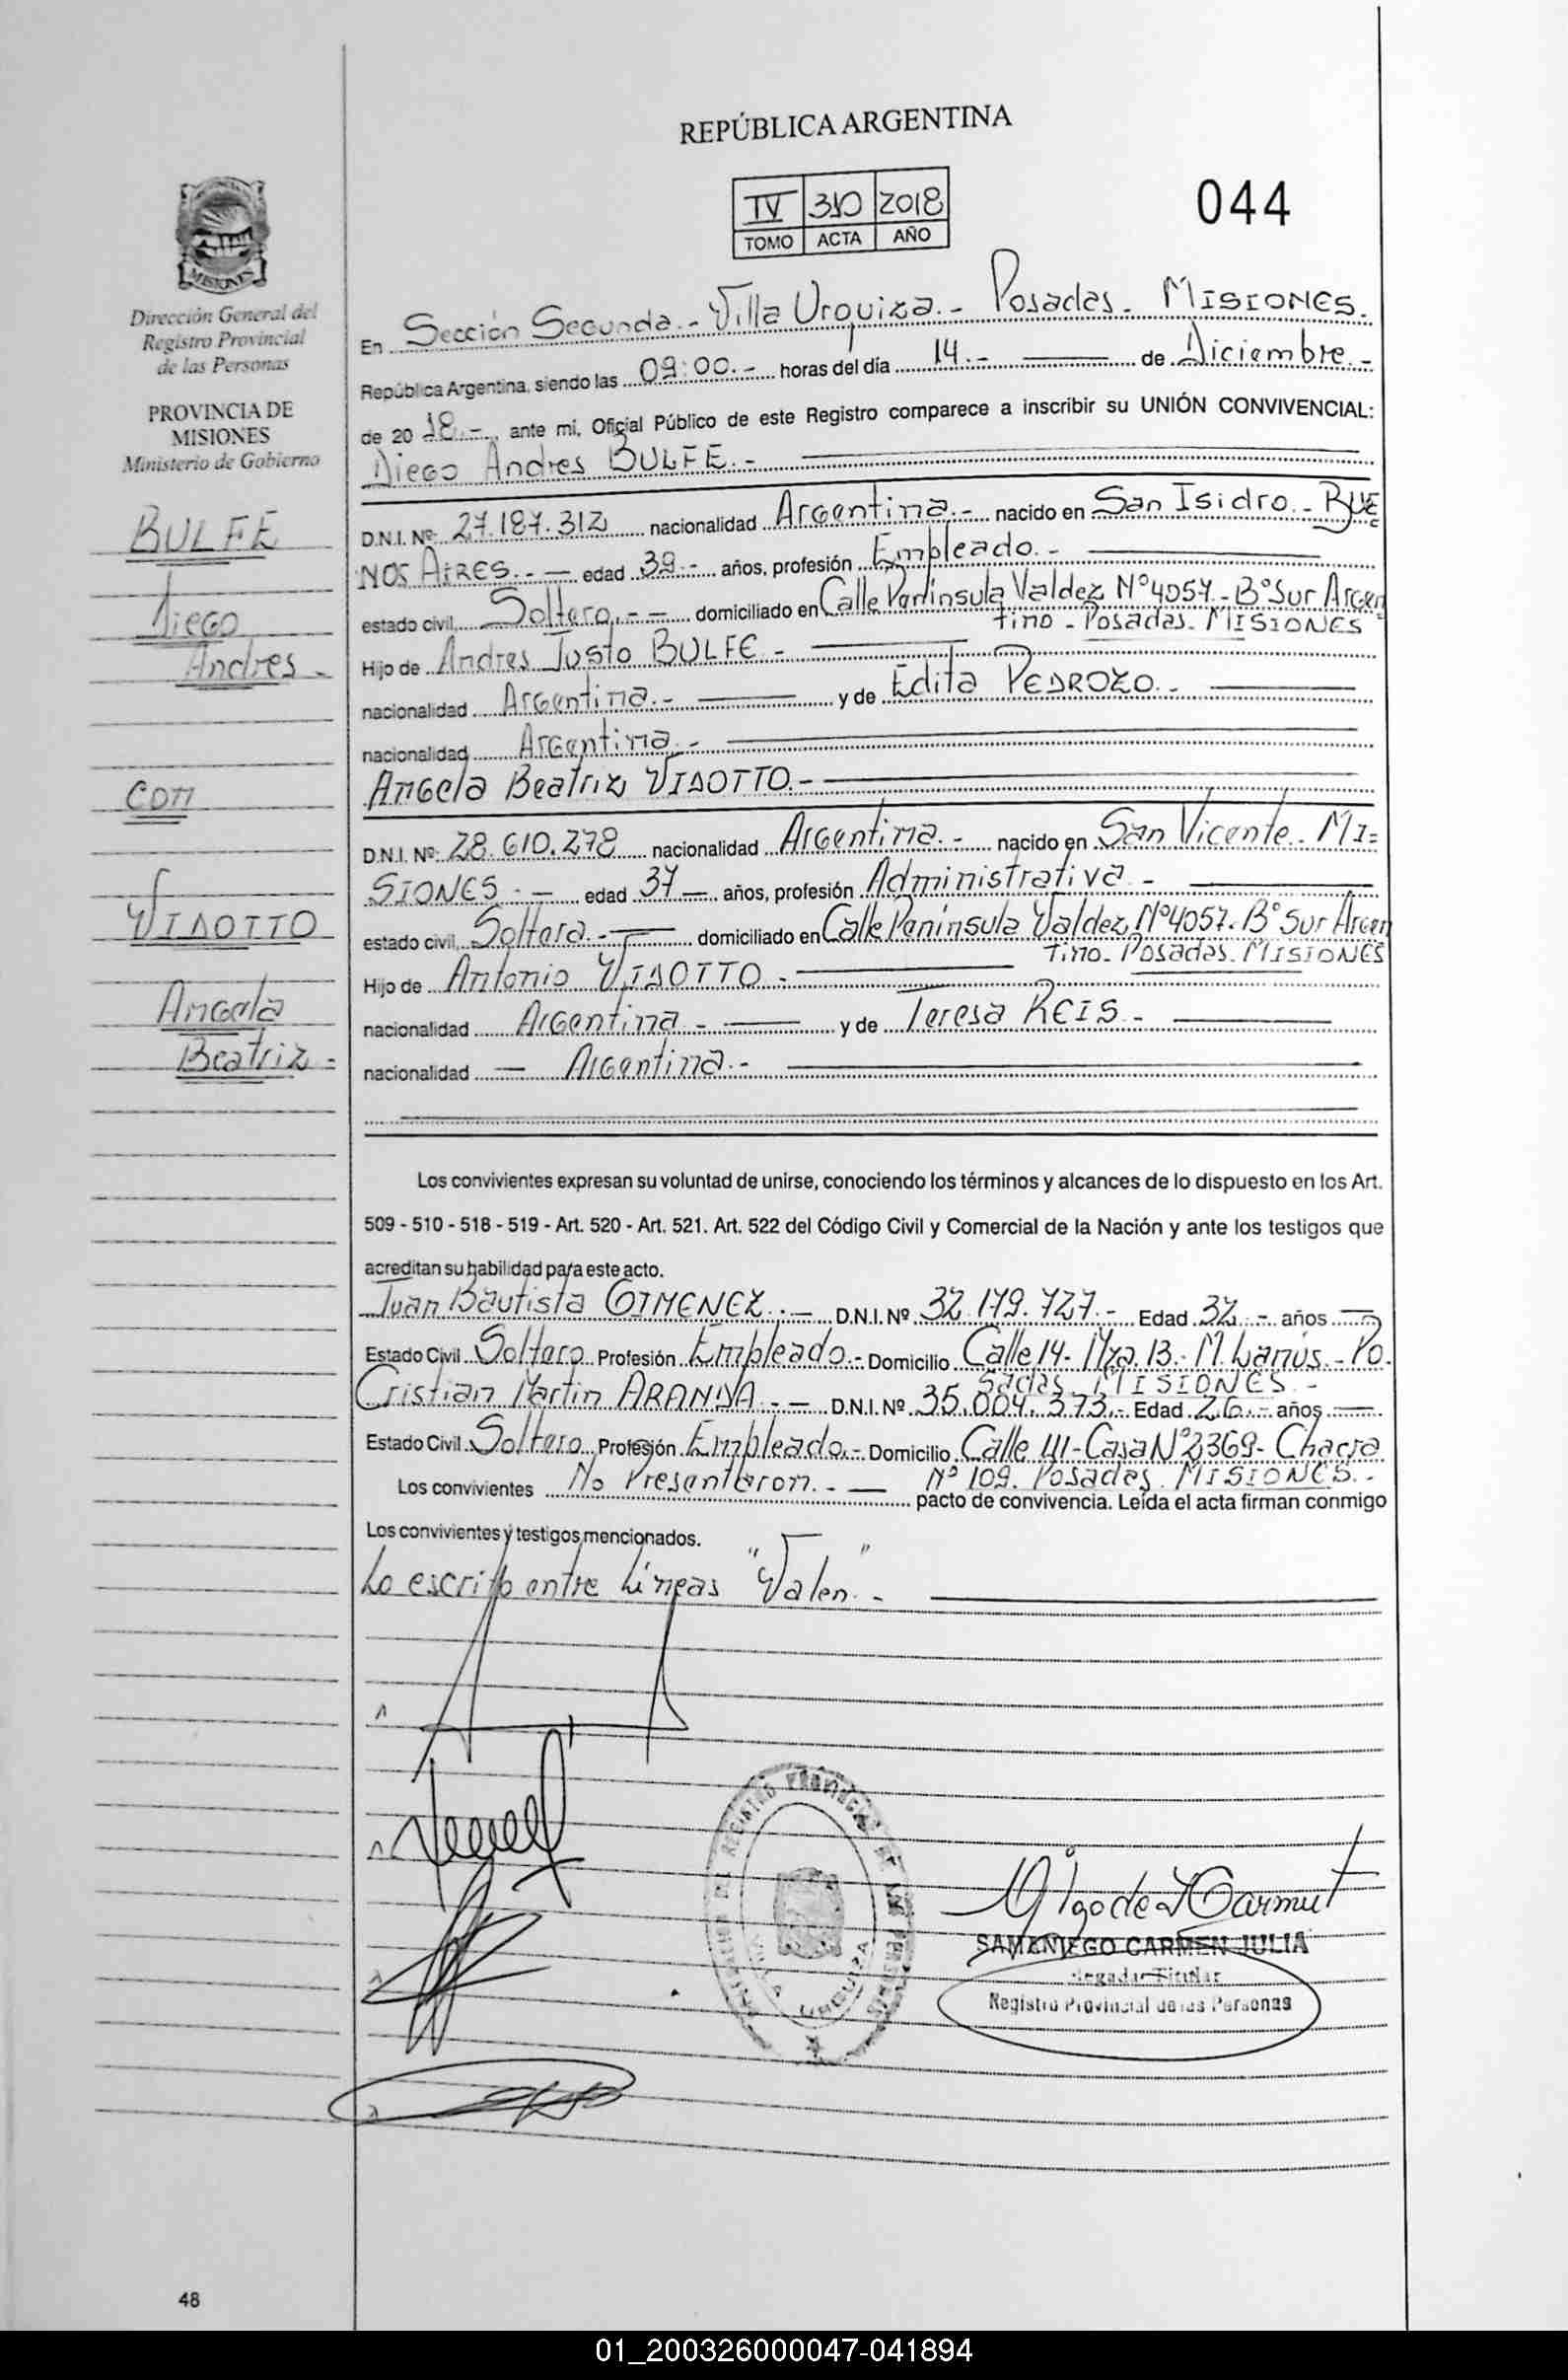 REPÚBLICA ARGENTINA
IV 310 2018
TOMO ACTA AÑO
044
MISIONES
Dirección General del
Registro Provincial
de las Personas
PROVINCIA DE
MISIONES
Ministerio de Gobierno
BULFE
Diego
Andres -
con
VIDOTTO
Angela
Beatriz =
En Sección Segunda.- Villa Urquiza.- Posadas - MISIONES.
República Argentina, siendo las 09:00.- horas del día 14.- de Diciembre.-
de 20 18.- ante mi, Oficial Público de este Registro comparece a inscribir su UNIÓN CONVIVENCIAL:
Diego Andres BULFE.-
D.N.I. Nº 27.187.312 nacionalidad Argentina.- nacido en San Isidro - BUE
NOS AIRES.- edad 39.- años, profesión Empleado.-
estado civil Soltero.- domiciliado en Calle Peninsula Valdez Nº4057 - Bº Sur Argen
tino - Posadas - MISIONES
Hijo de Andres Justo BULFE -
nacionalidad Argentina.- y de Edita PEDROZO.-
nacionalidad Argentina.-
Angela Beatriz VIDOTTO.-
D.N.I. Nº 28.610.278 nacionalidad Argentina.- nacido en San Vicente - MI=
SIONES.- edad 37 años, profesión Administrativa -
estado civil Soltera.- domiciliado en Calle Peninsula Valdez Nº4057. Bº Sur Argen
tino. Posadas. MISIONES
Hijo de Antonio VIDOTTO -
nacionalidad Argentina - y de Teresa REIS.-
nacionalidad Argentina.-
Los convivientes expresan su voluntad de unirse, conociendo los términos y alcances de lo dispuesto en los Art.
509 - 510 - 518 - 519 - Art. 520 - Art. 521. Art. 522 del Código Civil y Comercial de la Nación y ante los testigos que
acreditan su habilidad para este acto.
Juan Bautista GIMENEZ.- D.N.I. Nº 32.179.727.- Edad 32.- años
Estado Civil Soltero Profesión Empleado.- Domicilio Calle 14- Mza 13.- M. Lanús.- Po
sadas MISIONES.-
Cristian Martin ARANDA.- D.N.I. Nº 35.004.373.- Edad 26.- años
Estado Civil Soltero Profesión Empleado.- Domicilio Calle 41-Casa Nº2369- Chacra
Nº 109. Posadas. MISIONES.-
Los convivientes No Presentaron.- pacto de convivencia. Leída el acta firman conmigo
Los convivientes y testigos mencionados.
Lo escrito entre Líneas "Valen".-
SAMANIEGO CARMEN JULIA
Delegada Titular
Registro Provincial de las Personas
48
01_200326000047-041894